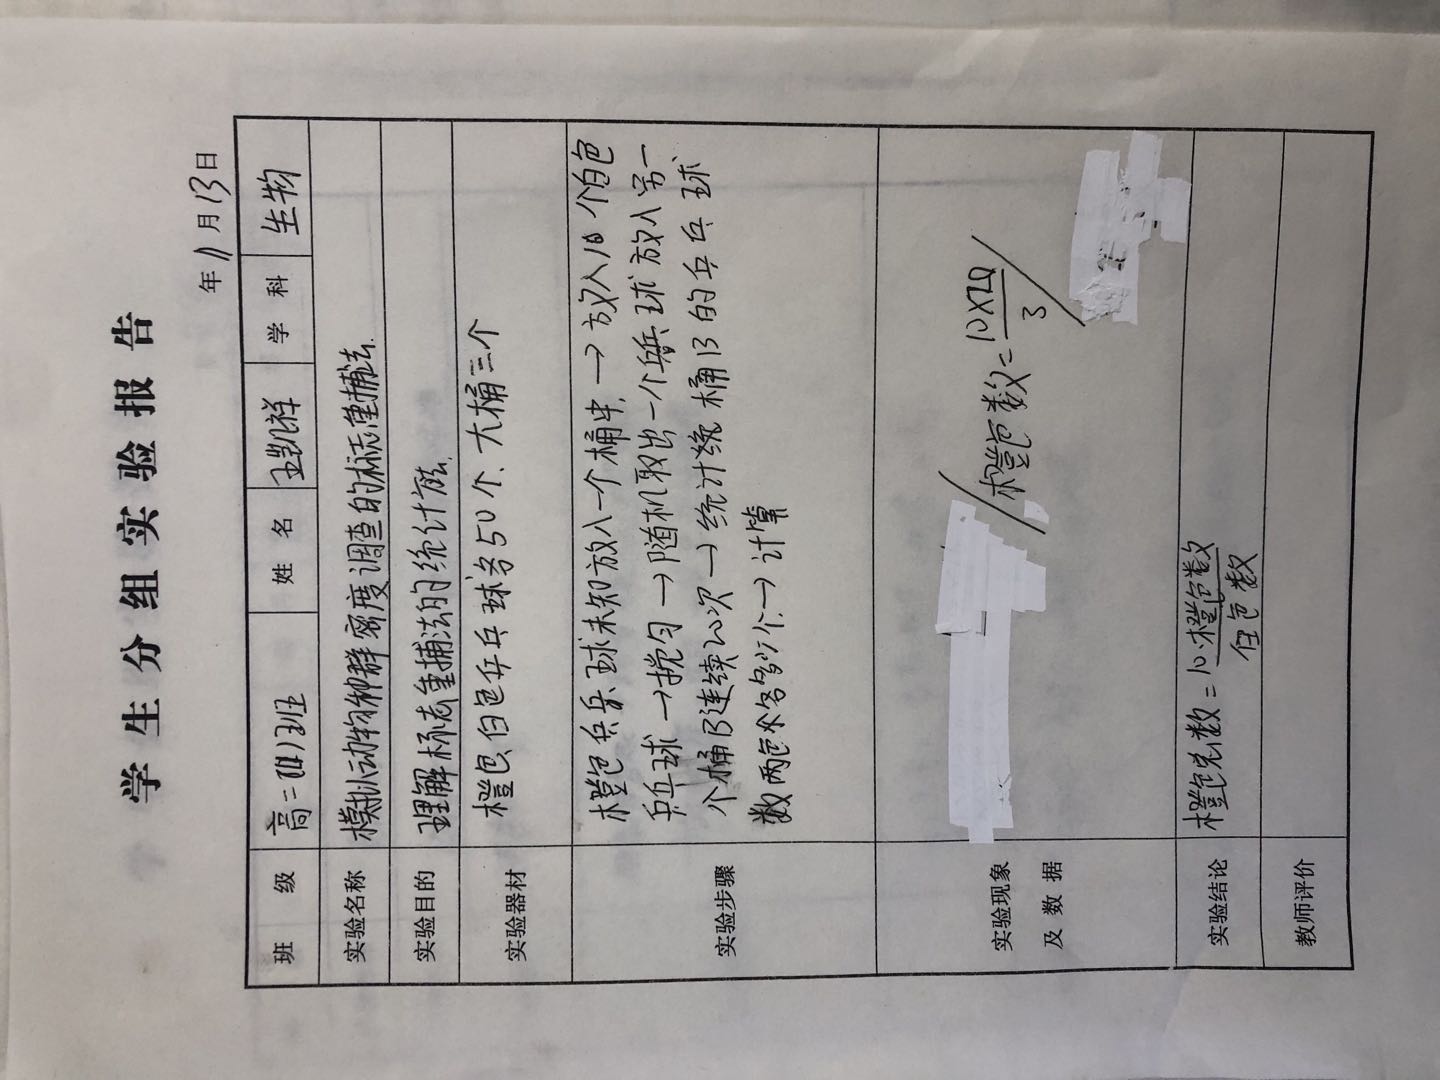 学生分组实验报告
年 11 月 13 日
班 级 高二 姓 名 王凯祥 学 科 生物
实验名称 模拟动物种群密度调查的标志重捕法.
实验目的 理解标志重捕法的统计方法.
实验器材 橙色、白色乒乓球各50个、大桶三个
实验步骤 橙色乒乓球未知放入一个桶中.→放入10个白色
乒乓球→搅匀→随机取出一个乒乓球放入另一
个桶B连续20次→统计 桶B的乒乓球
数两色 个→计算
实验现象
及 数 据
橙色数=10×20/3
实验结论 橙色总数=10·橙色数/白色数
教师评价